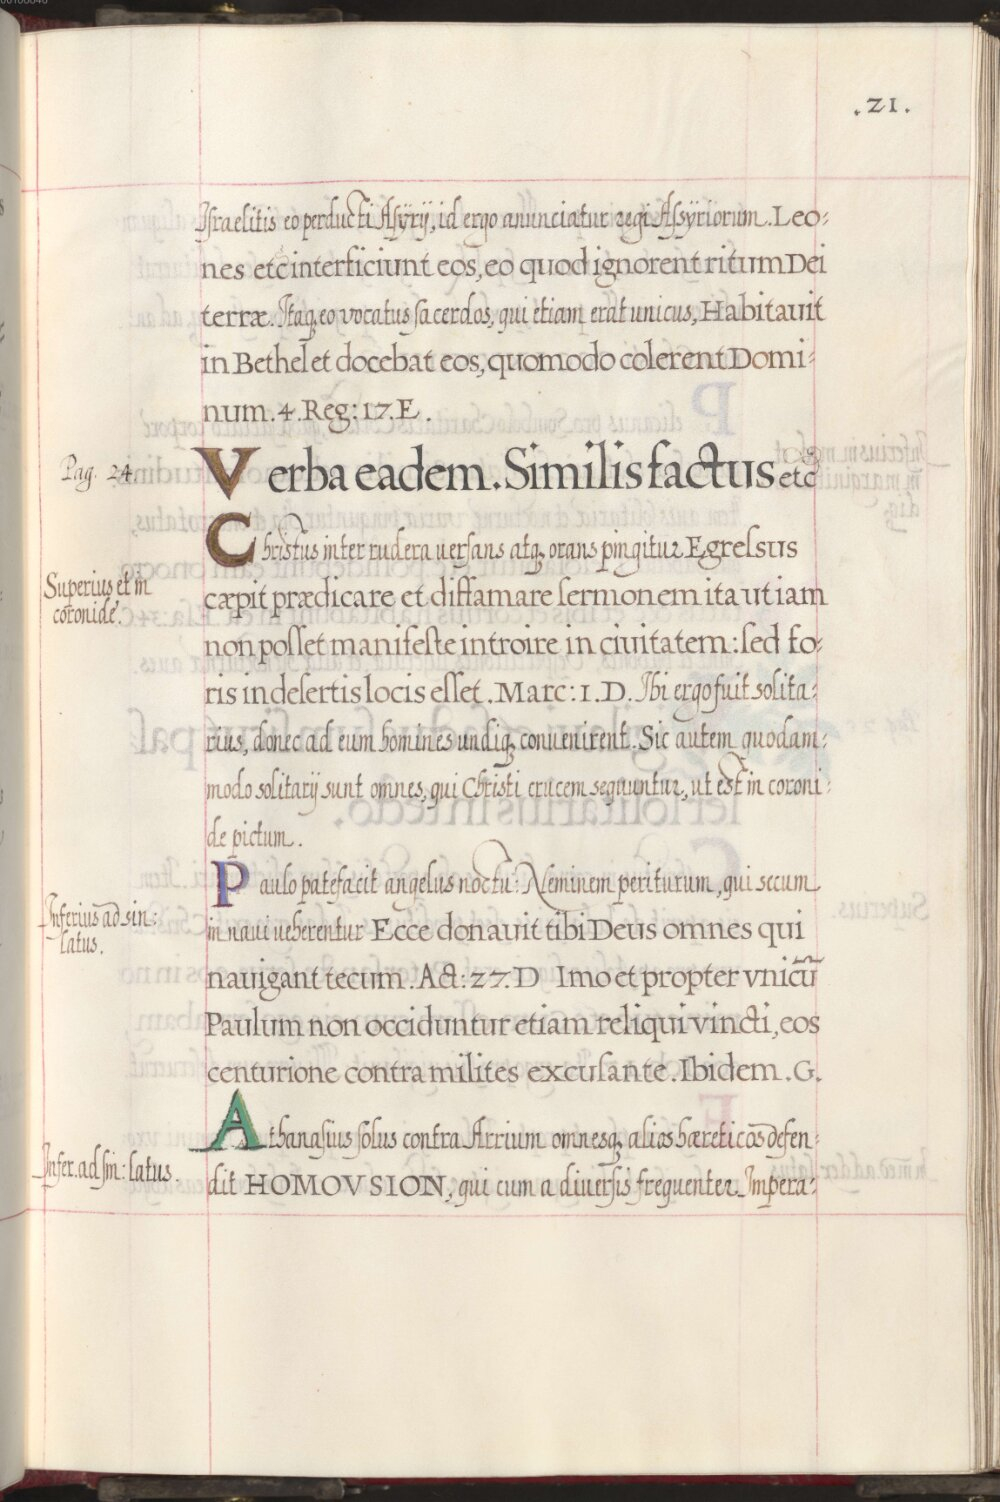 .21.
Israelitis eo perducti Assÿrij, id ergo anunciatur regi Assÿriorum. Leo-
nes etc interficiunt eos, eo quod ignorent ritum Dei
terræ. Itaq; eo vocatus sacerdos, qui etiam erat unicus, Habitauit
in Bethel et docebat eos, quomodo colerent Domi-
num. 4. Reg: 17. E.
Pag. 24
Verba eadem. Similis factus etc
Christus inter rudera uersans atq; orans pingitur Egressus
Superius et in
coronide.
cæpit prædicare et diffamare sermonem ita ut iam
non posset manifeste introire in ciuitatem: sed fo-
ris in desertis locis esset. Marc: 1. D. Ibi ergo fuit solita-
rius, donec ad eum homines undiq; conuenirent. Sic autem quodam-
modo solitarij sunt omnes, qui Christi crucem sequuntur, ut est in coroni-
de pictum.
Paulo patefacit angelus noctu: Neminem periturum, qui secum
Inferius ad sin:
latus.
in naui ueherentur Ecce donauit tibi Deus omnes qui
nauigant tecum. Act: 27. D Imo et propter vnicū
Paulum non occiduntur etiam reliqui vincti, eos
centurione contra milites excusante. Ibidem. G.
Athanasius solus contra Arrium omnesq; alios hæreticos defen-
Infer. ad sin: latus.
dit HOMOVSION, qui cum a diuersis frequenter Impera-